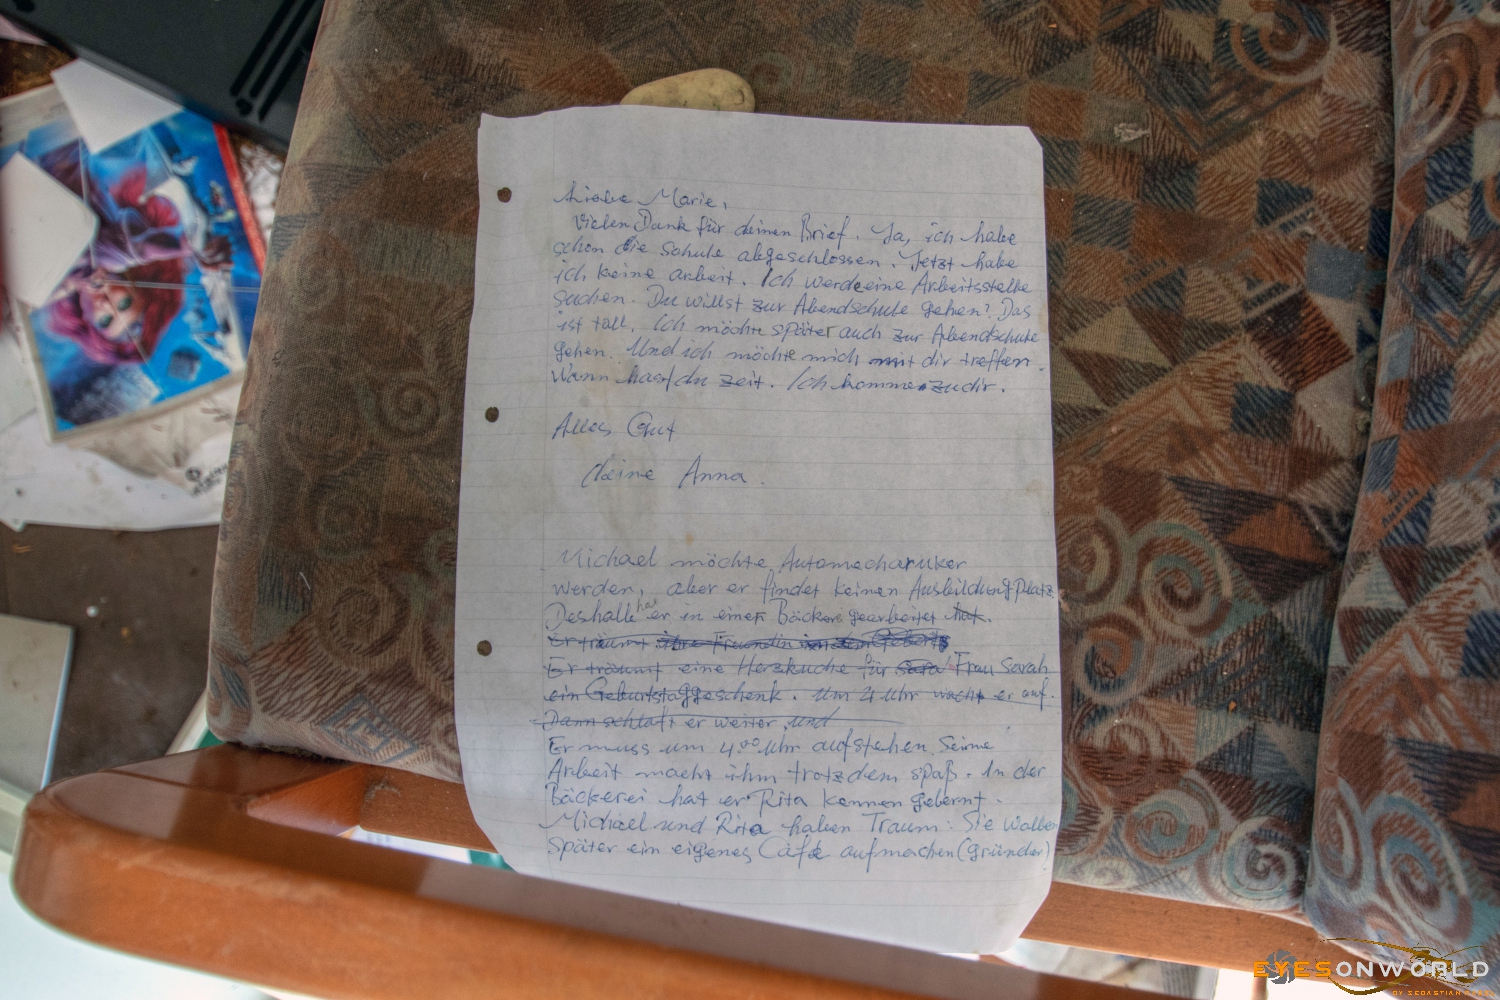 Liebe Marie,
Vielen Dank für deinen Brief. Ja, ich habe
schon die Schule abgeschlossen. Jetzt habe
ich keine arbeit. Ich werde eine Arbeitsstelle
suchen. Du willst zur Abendschule gehen? Das
ist toll. Ich möchte später auch zur Abendschule
gehen. Und ich möchte mich mit dir treffen.
Wann hast du zeit. Ich komme zu dir.
Alles Gut
deine Anna.
Michael möchte Automechaniker
werden, aber er findet keinen Ausbildungplatz.
Deshalb hat er in einer Bäckerei gearbeitet hat.
Er träumt ihre Freundin in dem
Er träumt eine Herzkuche für Sara Frau Sarah
ein Geburtstaggeschenk. Um 4 Uhr wacht er auf.
Dann schlaft er weiter und
Er muss um 4.00 Uhr aufstehen. Seine
Arbeit macht ihm trotzdem spaß. In der
Bäckerei hat er Rita kennen gelernt.
Michael und Rita haben Traum: Sie wollen
später ein eigenes Café aufmachen (gründen)
EYESONWORLD
BY SEBASTIAN